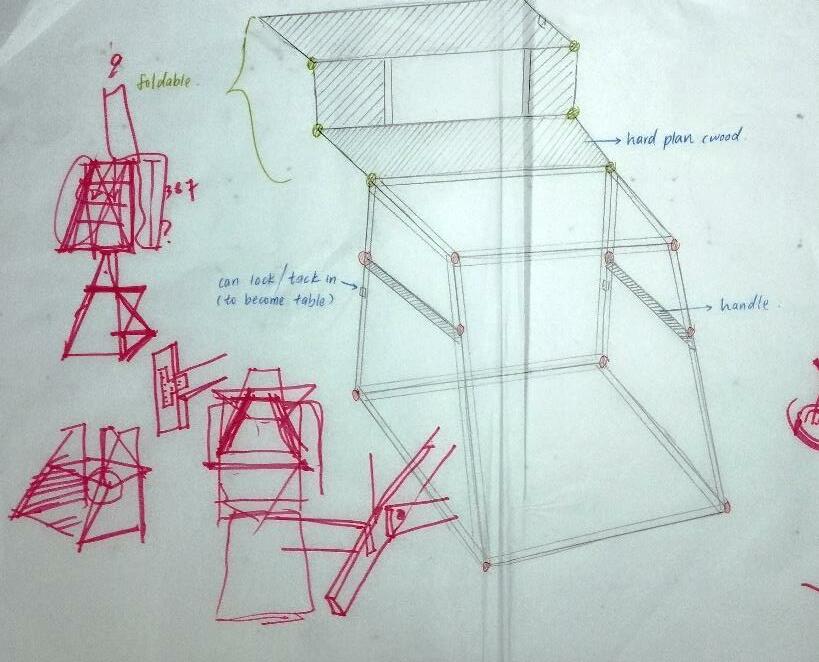 foldable.
hard plan cwood.
367
?
can lock/tack in
(to become table)
handle.